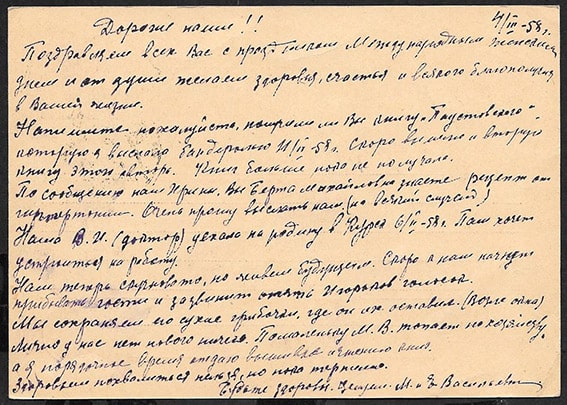 Дорогие наши!!
4/III-58 г.
Поздравляем всех Вас с праздником Международным женским
днем и от души желаем здоровья, счастья и всякого благополучия
в Вашей жизни.
Напишите пожалуйста, получили ли Вы книгу Паустовского
которую я выслала бандеролью 11/II-58г. Скоро вышлю и вторую
книгу этого автора. Книг больше пока не получала.
По сообщению нам Ирины, Вы Берта Михайловна знаете рецепт от
гипертонии. Очень прошу выслать нам (на всякий случай)
Наша В. И. (доктор) уехала на родину в Курск 6/II-58г. Там хочет
устроиться на работу.
Нам теперь скучновато, но живем будущим. Скоро к нам начнут
прибывать гости и зазвенит опять Игорьков голосок.
Мы сохраняем его сухие грибочки, где он их оставил. (Возле окна)
Лично у нас нет нового ничего. Помаленьку М. В. топает по хозяйству,
а я порядочное время отдаю вышивке и чтению
Здоровьем похвалиться нельзя, но пока терпимо.
Будьте здоровы. Целуем. М. и Васильевы